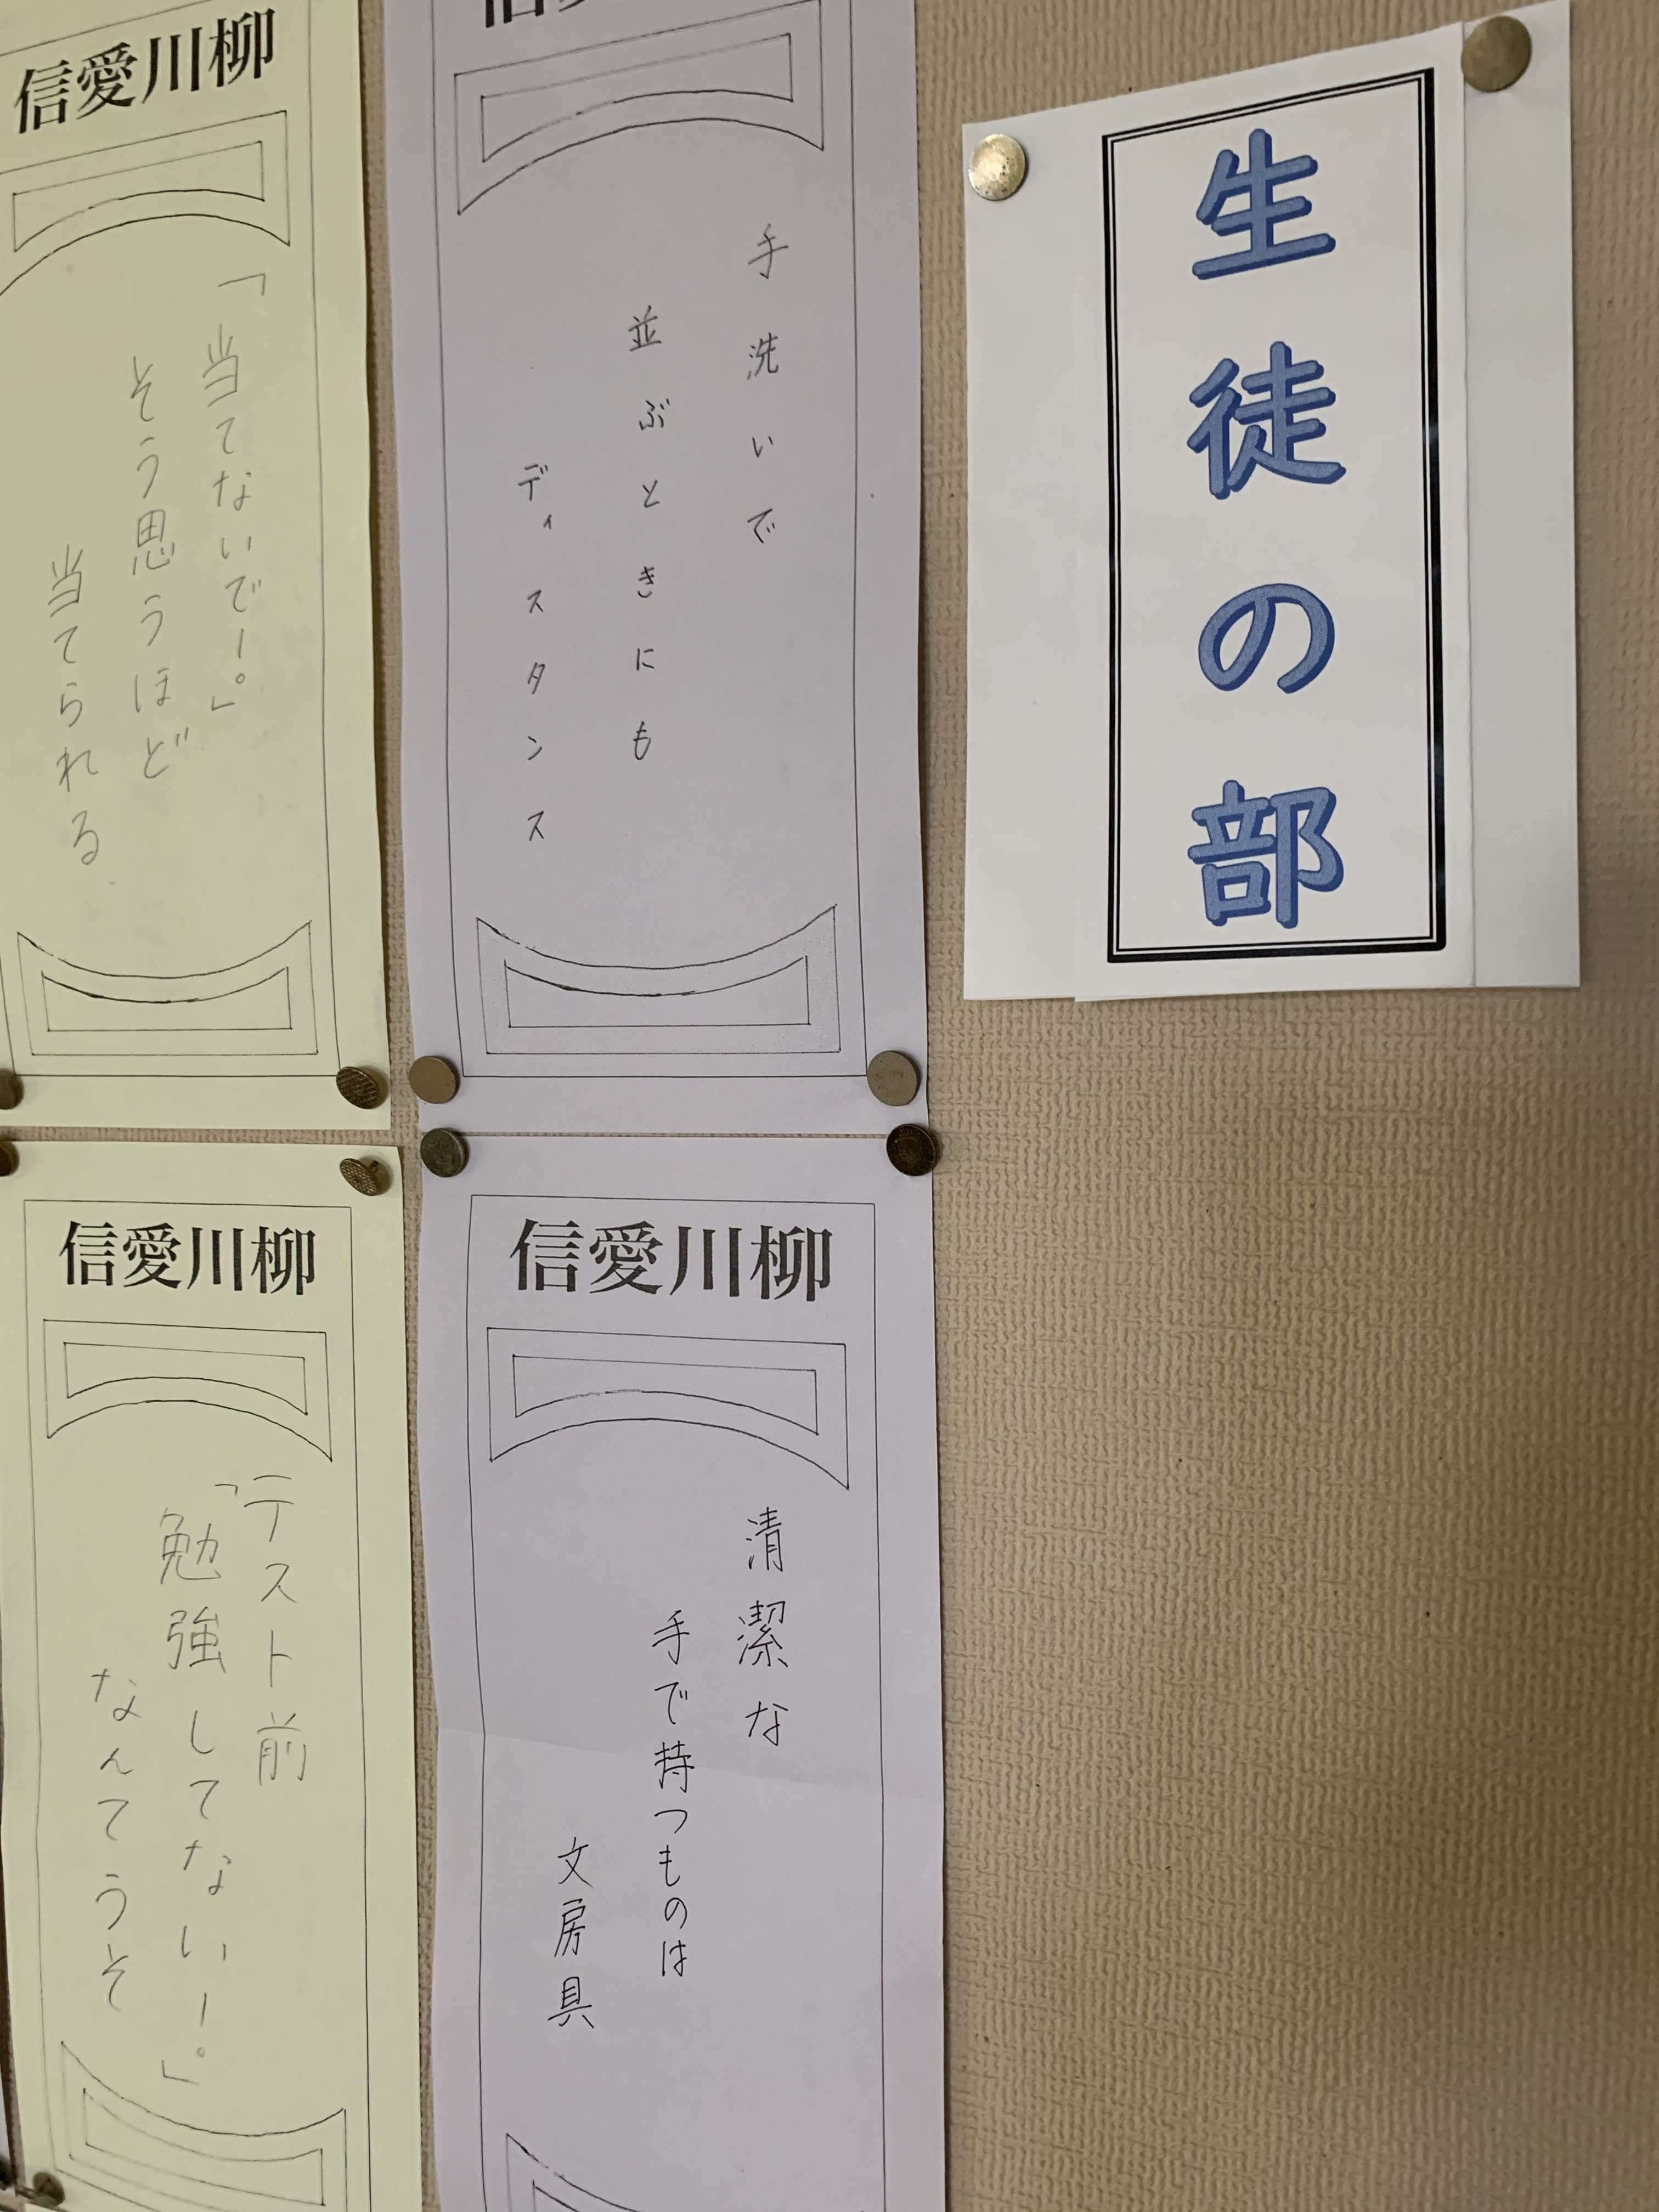 生徒の部
手洗いで
並ぶときにも
ディスタンス
信愛川柳
清潔な
手で持つものは
文房具
信愛川柳
「当てないでー。」
そう思うほど
当てられる
信愛川柳
テスト前
「勉強してないー。」
なんてうそ